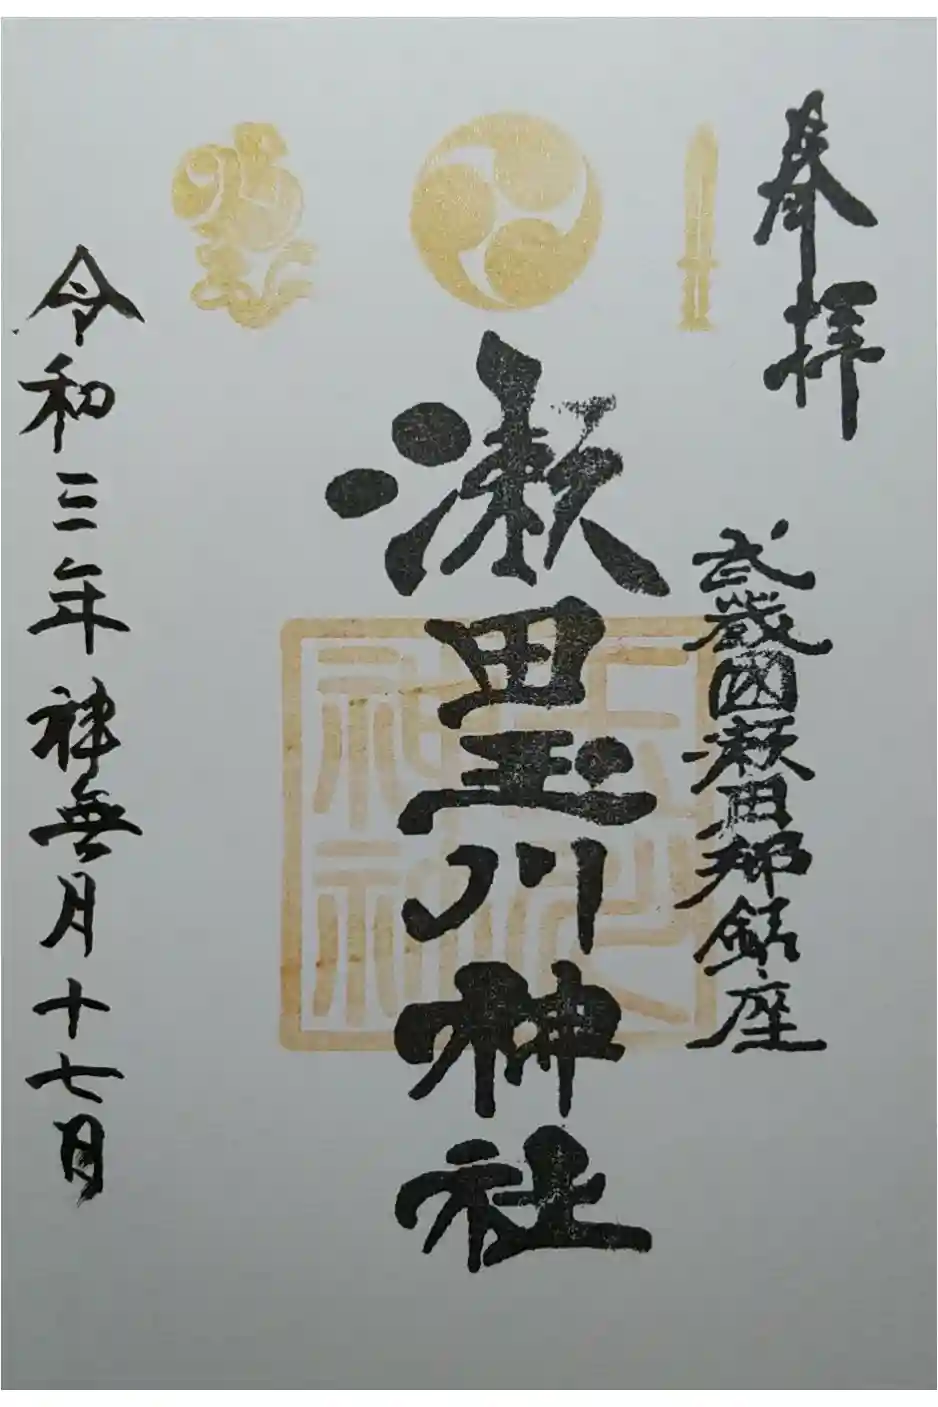 奉拝
武蔵國瀬田郷鎮座
瀬田玉川神社
令和三年神無月十七日